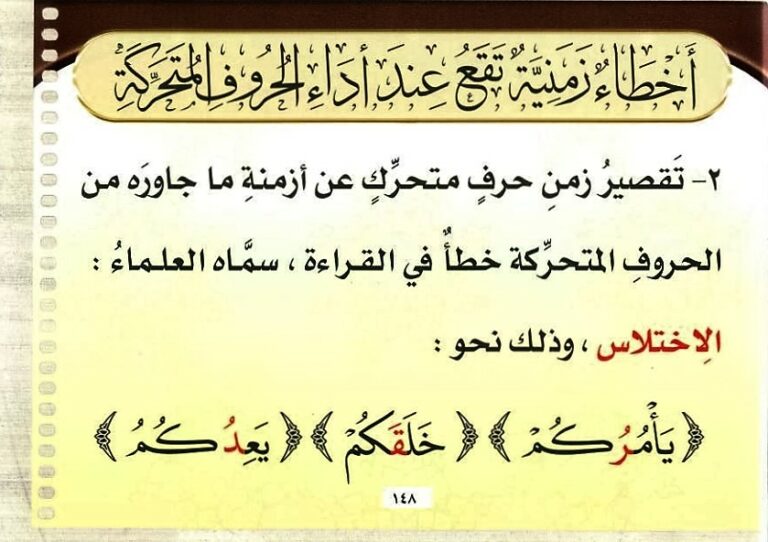 أَخْطَاءٌ زَمَنِيَّةٌ تَقَعُ عِندَ أَدَاءِ الحُرُوفِ المُتَحَرِّكَةِ
٢- تَقصيرُ زمنِ حرفٍ متحرِّكٍ عن أزمنةِ ما جاورَه من
الحروفِ المتحرِّكة خطأٌ في القراءة ، سمَّاه العلماءُ :
الِاختلاس ، وذلك نحو :
﴿ يَأْمُرُكُمْ ﴾ ﴿ خَلَقَكُمْ ﴾ ﴿ يَعِدُكُمُ ﴾
١٤٨